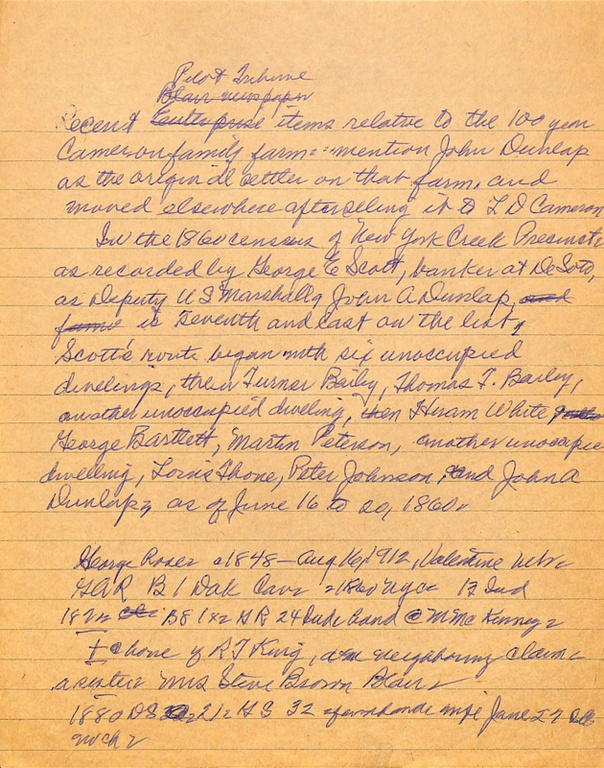 Pilot Tribune
Blair newspaper
Recent Enterprise items relative to the 100 year
Cameron family farm == mention John Dunlap
as the original settler on that farm, and
moved elsewhere after selling it to L D Cameron
In the 1860 census of New York Creek Precinct
as recorded by George E Scott, banker at DeSoto,
as Deputy U S Marshall, John A Dunlap, and
is seventh and last on the list,
Scott's route began with six unoccupied
dwelings, then Turner Baily, Thomas T. Bailey,
another unoccupied dweling, then Hiram White
George Bartlett, Martin Peterson, another unoccupie
dweling, Loris Thone, Peter Johnson, and John A
Dunlap, as of June 16 to 20, 1860.
George Rosez 1848 - Aug 16, 1912, Valentine Neb
GAR B 1 Dak Cav = 1860 NYC 17 Ind
B8 1x2 HR 24 Ind @ McKinney
home of R T King, neighboring claim
a sister Mrs Steve Brown Blair
1880 DS 212 HS 32 farmhand wife Jane 27